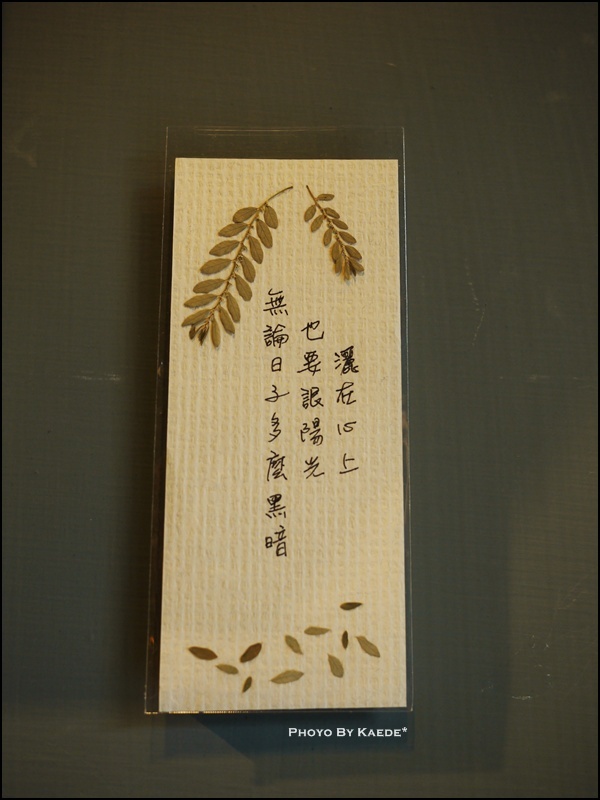 無論日子多麼黑暗
也要誏陽光
灑在心上
PHOYO BY KAEDE*